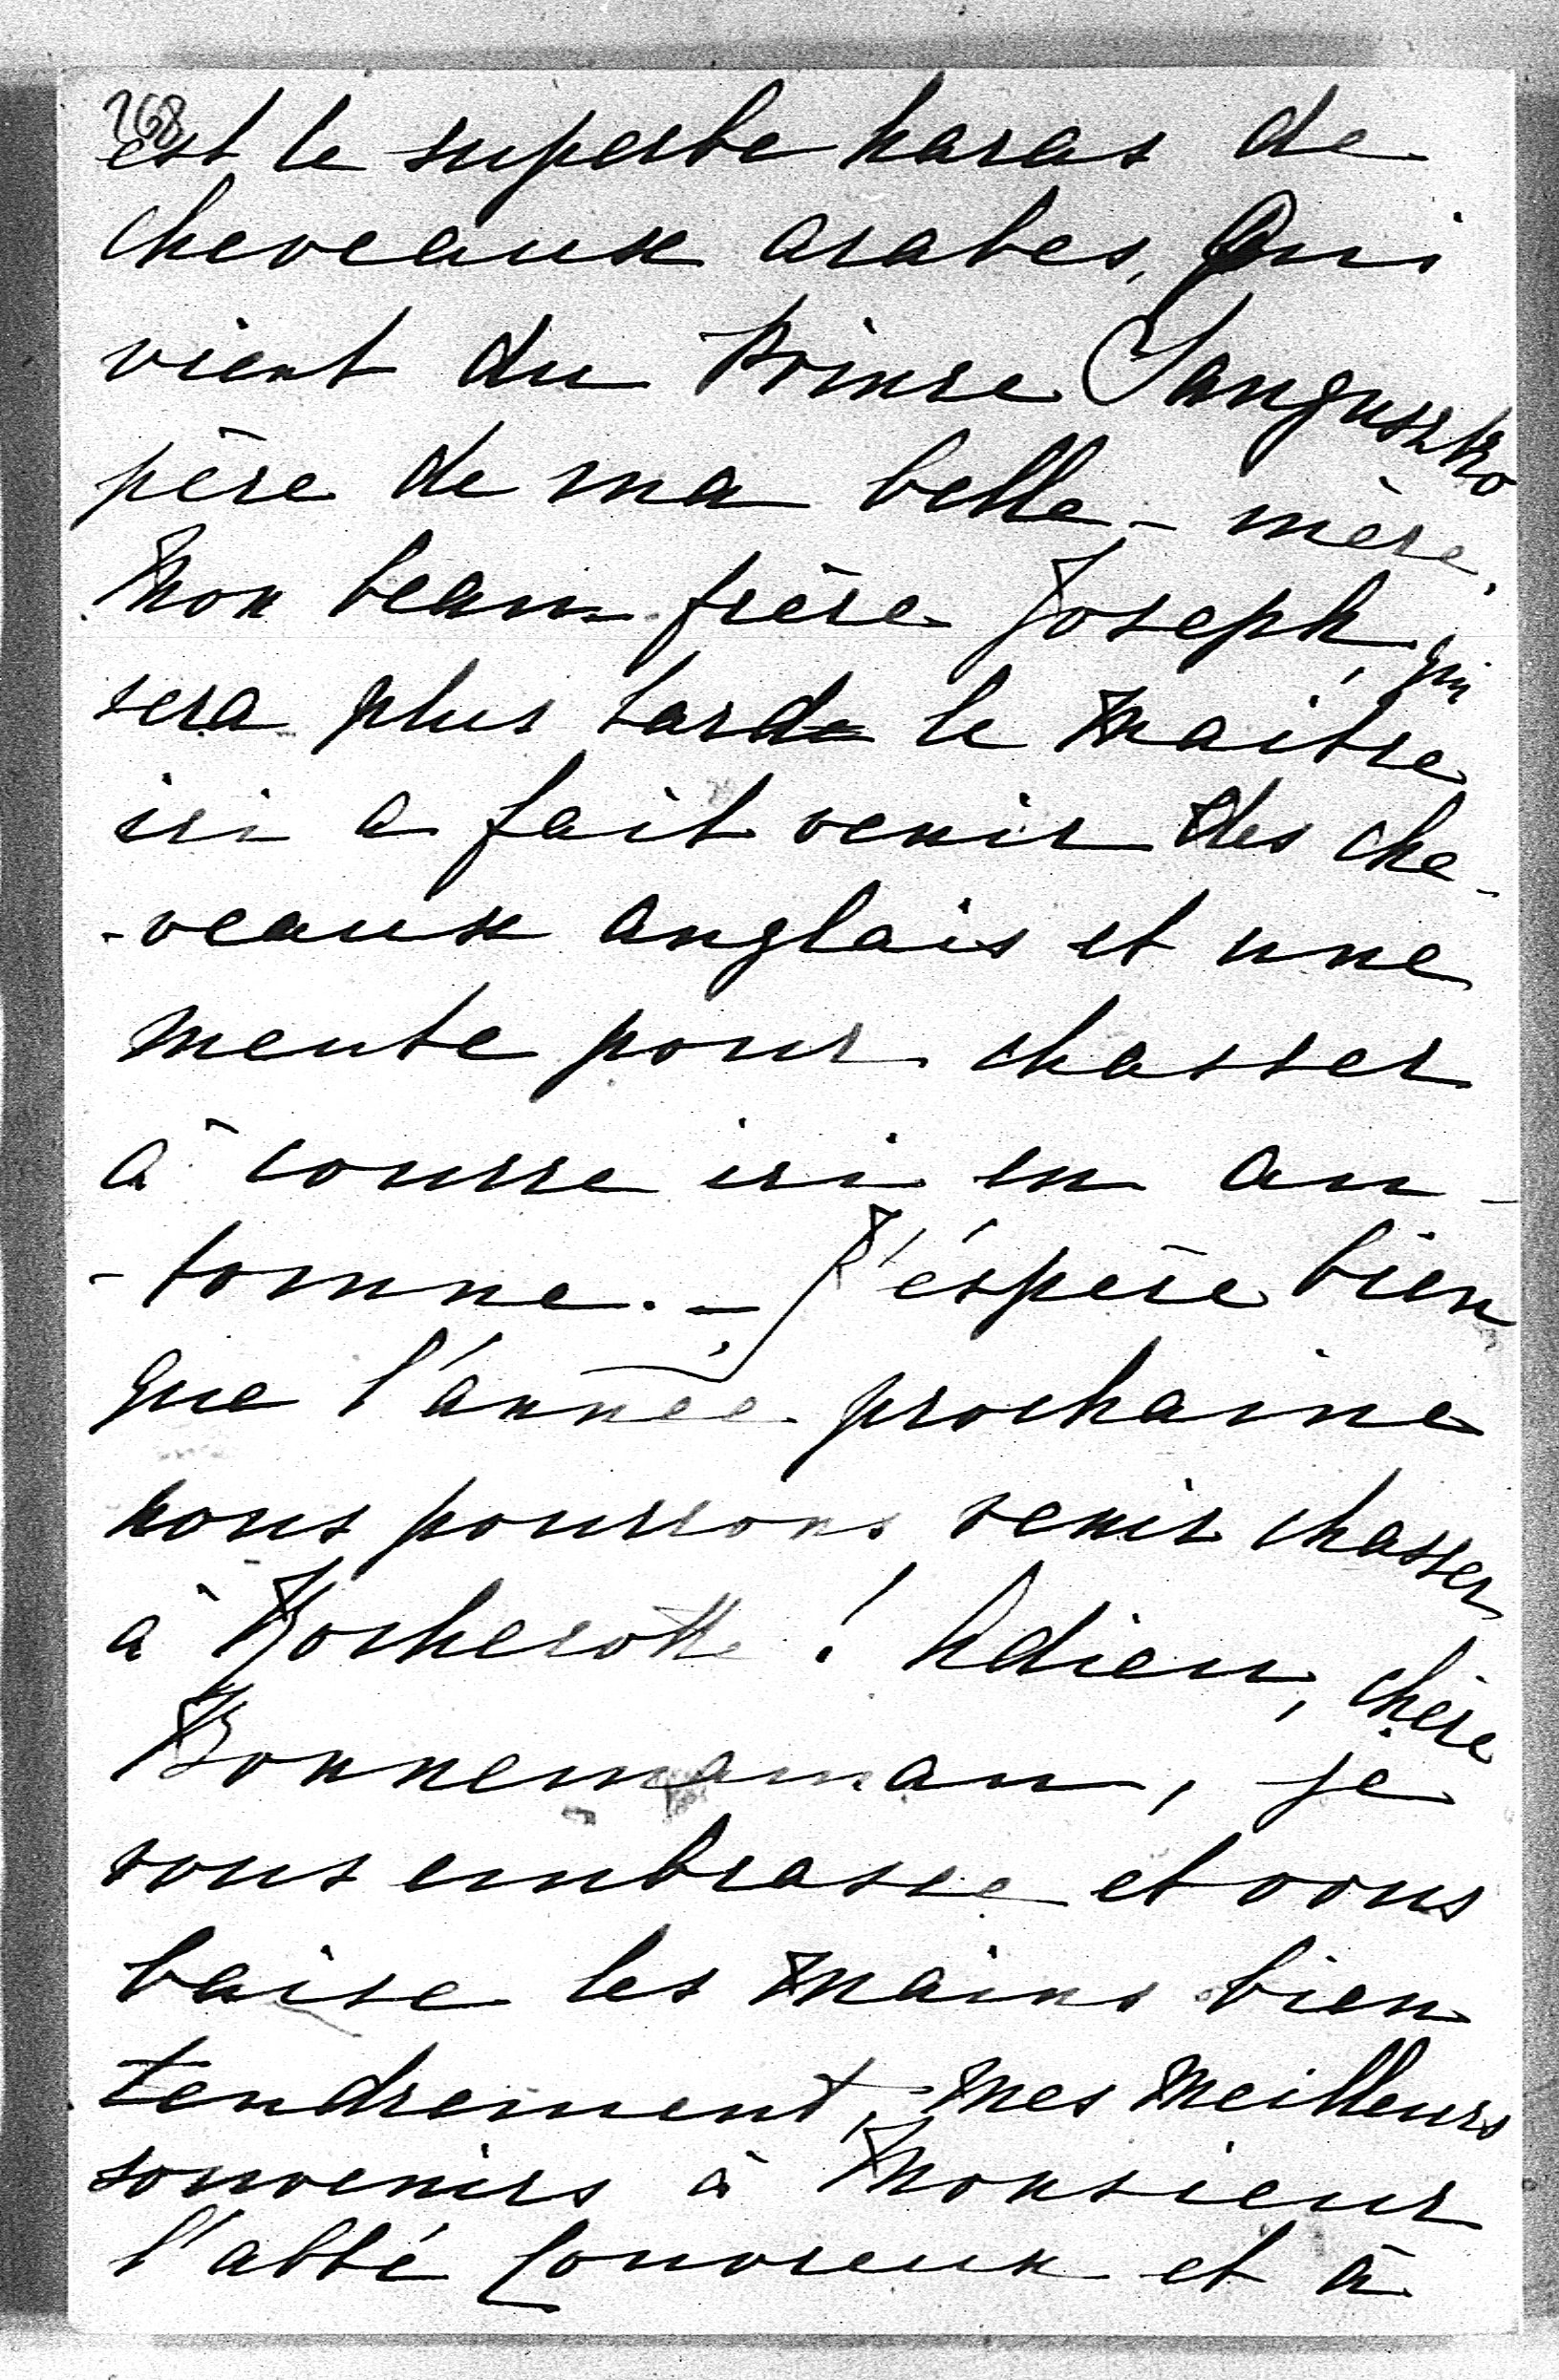 268
est le superbe haras de
cheveaux arabes, qui
vient du Prince Sanguszko
père de ma belle-mère.
Mon beau-frère Joseph, qui
sera plus tard le maître
ici a fait venir des che-
-veaux anglais et une
meute pour chasser
à courre ici en au-
-tomne. — J'éspère bien
que l'année prochaine
nous pourrons venir chasser
à Rocherotte! Adieu, chère
Bonnemaman, je
vous embrasse et vous
baise les mains bien
tendrement, mes meilleurs
souvenirs à Monsieur
l'abbé Couvreux et à